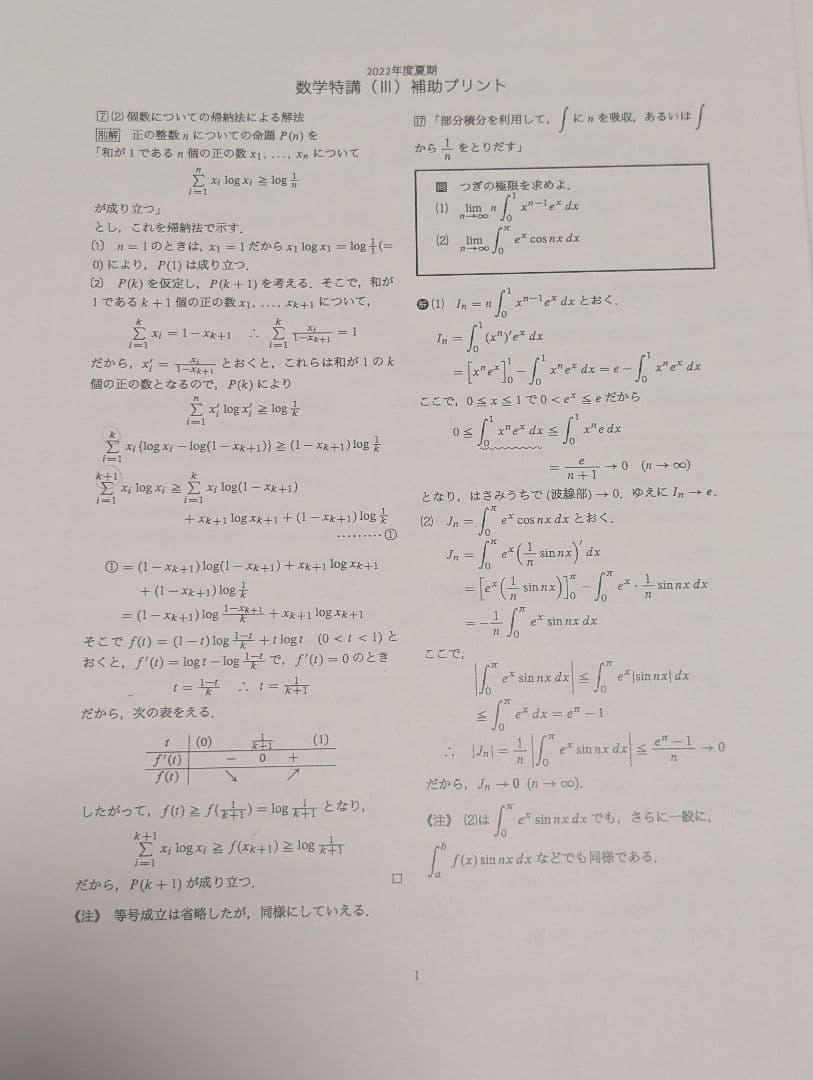 2022年度夏期
数学特講（Ⅲ）補助プリント
[7](2)個数についての帰納法による解法
[別解] 正の整数 n についての命題 P(n) を
「和が1である n 個の正の数 x₁, ..., xₙ について
∑_{i=1}^{n} xᵢ log xᵢ ≧ log 1/n
が成り立つ」
とし，これを帰納法で示す．
〔1〕 n = 1 のときは, x₁ = 1 だから x₁ log x₁ = log 1/1 (=
0) により，P(1) は成り立つ．
〔2〕 P(k) を仮定し，P(k + 1) を考える．そこで，和が
1 である k + 1 個の正の数 x₁, ..., x_{k+1} について，
∑_{i=1}^{k} xᵢ = 1 − x_{k+1} ∴ ∑_{i=1}^{k} xᵢ/(1−x_{k+1}) = 1
だから，x′ᵢ = xᵢ/(1−x_{k+1}) とおくと，これらは和が 1 の k
個の正の数となるので，P(k) により
∑_{i=1}^{n} x′ᵢ log x′ᵢ ≧ log 1/k
∑_{i=1}^{k} xᵢ{log xᵢ − log(1 − x_{k+1})} ≧ (1 − x_{k+1}) log 1/k
∑_{i=1}^{k+1} xᵢ log xᵢ ≧ ∑_{i=1}^{k} xᵢ log(1 − x_{k+1})
+ x_{k+1} log x_{k+1} + (1 − x_{k+1}) log 1/k
………①
① = (1 − x_{k+1}) log(1 − x_{k+1}) + x_{k+1} log x_{k+1}
+ (1 − x_{k+1}) log 1/k
= (1 − x_{k+1}) log (1−x_{k+1})/k + x_{k+1} log x_{k+1}
そこで f(t) = (1 − t) log (1−t)/k + t log t (0 < t < 1) と
おくと，f′(t) = log t − log (1−t)/k で，f′(t) = 0 のとき
t = (1−t)/k ∴ t = 1/(k+1)
だから，次の表をえる．
t (0) 1/(k+1) (1)
f′(t) − 0 +
f(t) ↘ ↗
したがって，f(t) ≧ f(1/(k+1)) = log 1/(k+1) となり，
∑_{i=1}^{k+1} xᵢ log xᵢ ≧ f(x_{k+1}) ≧ log 1/(k+1)
だから，P(k + 1) が成り立つ． □
《注》 等号成立は省略したが，同様にしていえる．
[17] 「部分積分を利用して，∫ に n を吸収，あるいは ∫
から 1/n をとりだす」
[問] つぎの極限を求めよ．
(1) lim_{n→∞} n ∫₀¹ x^{n−1}eˣ dx
(2) lim_{n→∞} ∫₀^π eˣ cos nx dx
(1) Iₙ = n ∫₀¹ x^{n−1}eˣ dx とおく．
Iₙ = ∫₀¹ (xⁿ)′eˣ dx
= [xⁿeˣ]₀¹ − ∫₀¹ xⁿeˣ dx = e − ∫₀¹ xⁿeˣ dx
ここで，0 ≦ x ≦ 1 で 0 < eˣ ≦ e だから
0 ≦ ∫₀¹ xⁿeˣ dx ≦ ∫₀¹ xⁿe dx
= e/(n + 1) → 0 (n → ∞)
となり，はさみうちで (波線部) → 0．ゆえに Iₙ → e．
(2) Jₙ = ∫₀^π eˣ cos nx dx とおく．
Jₙ = ∫₀^π eˣ(1/n sin nx)′ dx
= [eˣ(1/n sin nx)]₀^π − ∫₀^π eˣ · 1/n sin nx dx
= −1/n ∫₀^π eˣ sin nx dx
ここで，
|∫₀^π eˣ sin nx dx| ≦ ∫₀^π eˣ|sin nx| dx
≦ ∫₀^π eˣ dx = e^π − 1
∴ |Jₙ| = 1/n |∫₀^π eˣ sin nx dx| ≦ (e^π − 1)/n → 0
だから，Jₙ → 0 (n → ∞)．
《注》 (2)は ∫₀^π eˣ sin nx dx でも，さらに一般に，
∫ₐᵇ f(x) sin nx dx などでも同様である．
1